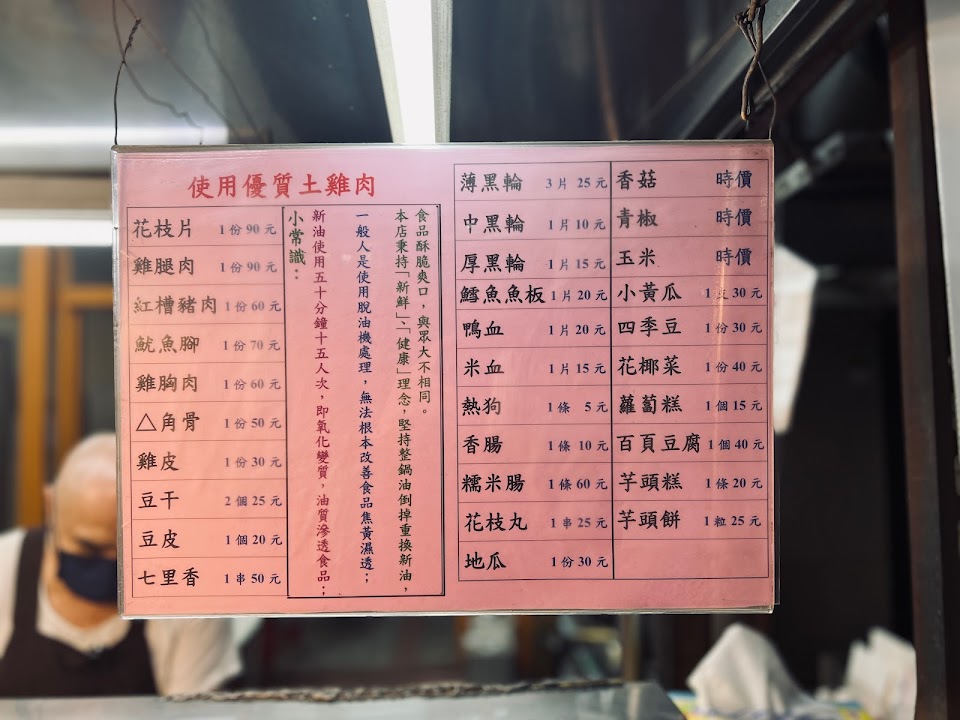 使用優質土雞肉
花枝片 1份90元
雞腿肉 1份90元
紅槽豬肉 1份60元
魷魚腳 1份70元
雞胸肉 1份60元
△角骨 1份50元
雞皮 1份30元
豆干 2個25元
豆皮 1個20元
七里香 1串50元
食品酥脆爽口，與眾大不相同。
本店秉持「新鮮」、「健康」理念，堅持整鍋油倒掉重換新油，
一般人是使用脫油機處理，無法根本改善食品焦黃濕透；
新油使用五十分鐘十五人次，即氧化變質，油質滲透食品；
小常識：
薄黑輪 3片 25元
中黑輪 1片10元
厚黑輪 1片15元
鱈魚魚板 1片20元
鴨血 1片20元
米血 1片15元
熱狗 1條 5元
香腸 1條 10元
糯米腸 1條60元
花枝丸 1串25元
地瓜 1份30元
香菇 時價
青椒 時價
玉米 時價
小黃瓜 1 30元
四季豆 1份30元
花椰菜 1份40元
蘿蔔糕 1個15元
百頁豆腐 1個40元
芋頭糕 1條20元
芋頭餅 1粒25元